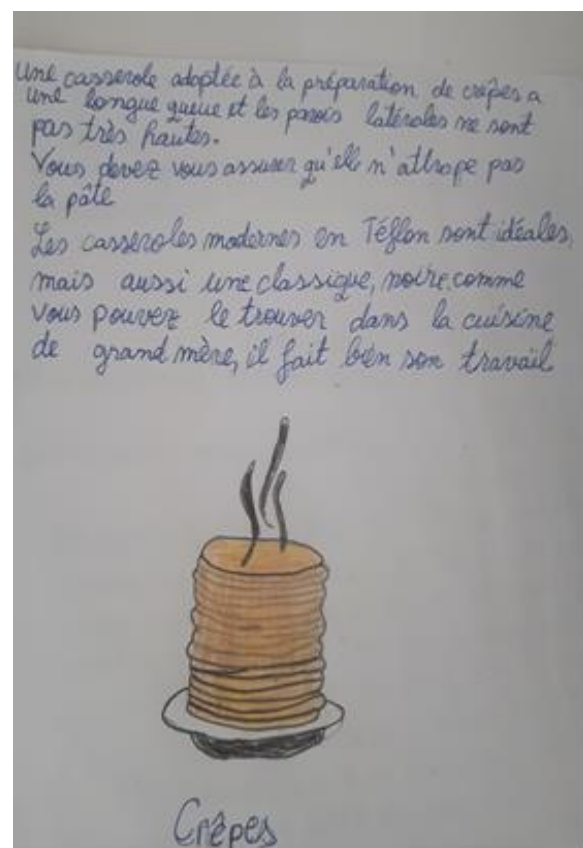 Une casserole adaptée à la préparation de crêpes a
une longue queue et les parois latérales ne sont
pas très hautes.
Vous devez vous assurer qu'elle n'attrape pas
la pâte
Les casseroles modernes en Téflon sont idéales,
mais aussi une classique, noire, comme
vous pouvez le trouver dans la cuisine
de grand mère, il fait bien son travail
Crêpes